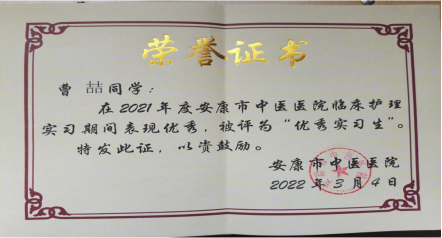 荣誉证书
曹喆同学：
在2021年度安康市中医医院临床护理
实习期间表现优秀，被评为“优秀实习生”。
特发此证，以资鼓励。
安康市中医医院
2022年3月4日